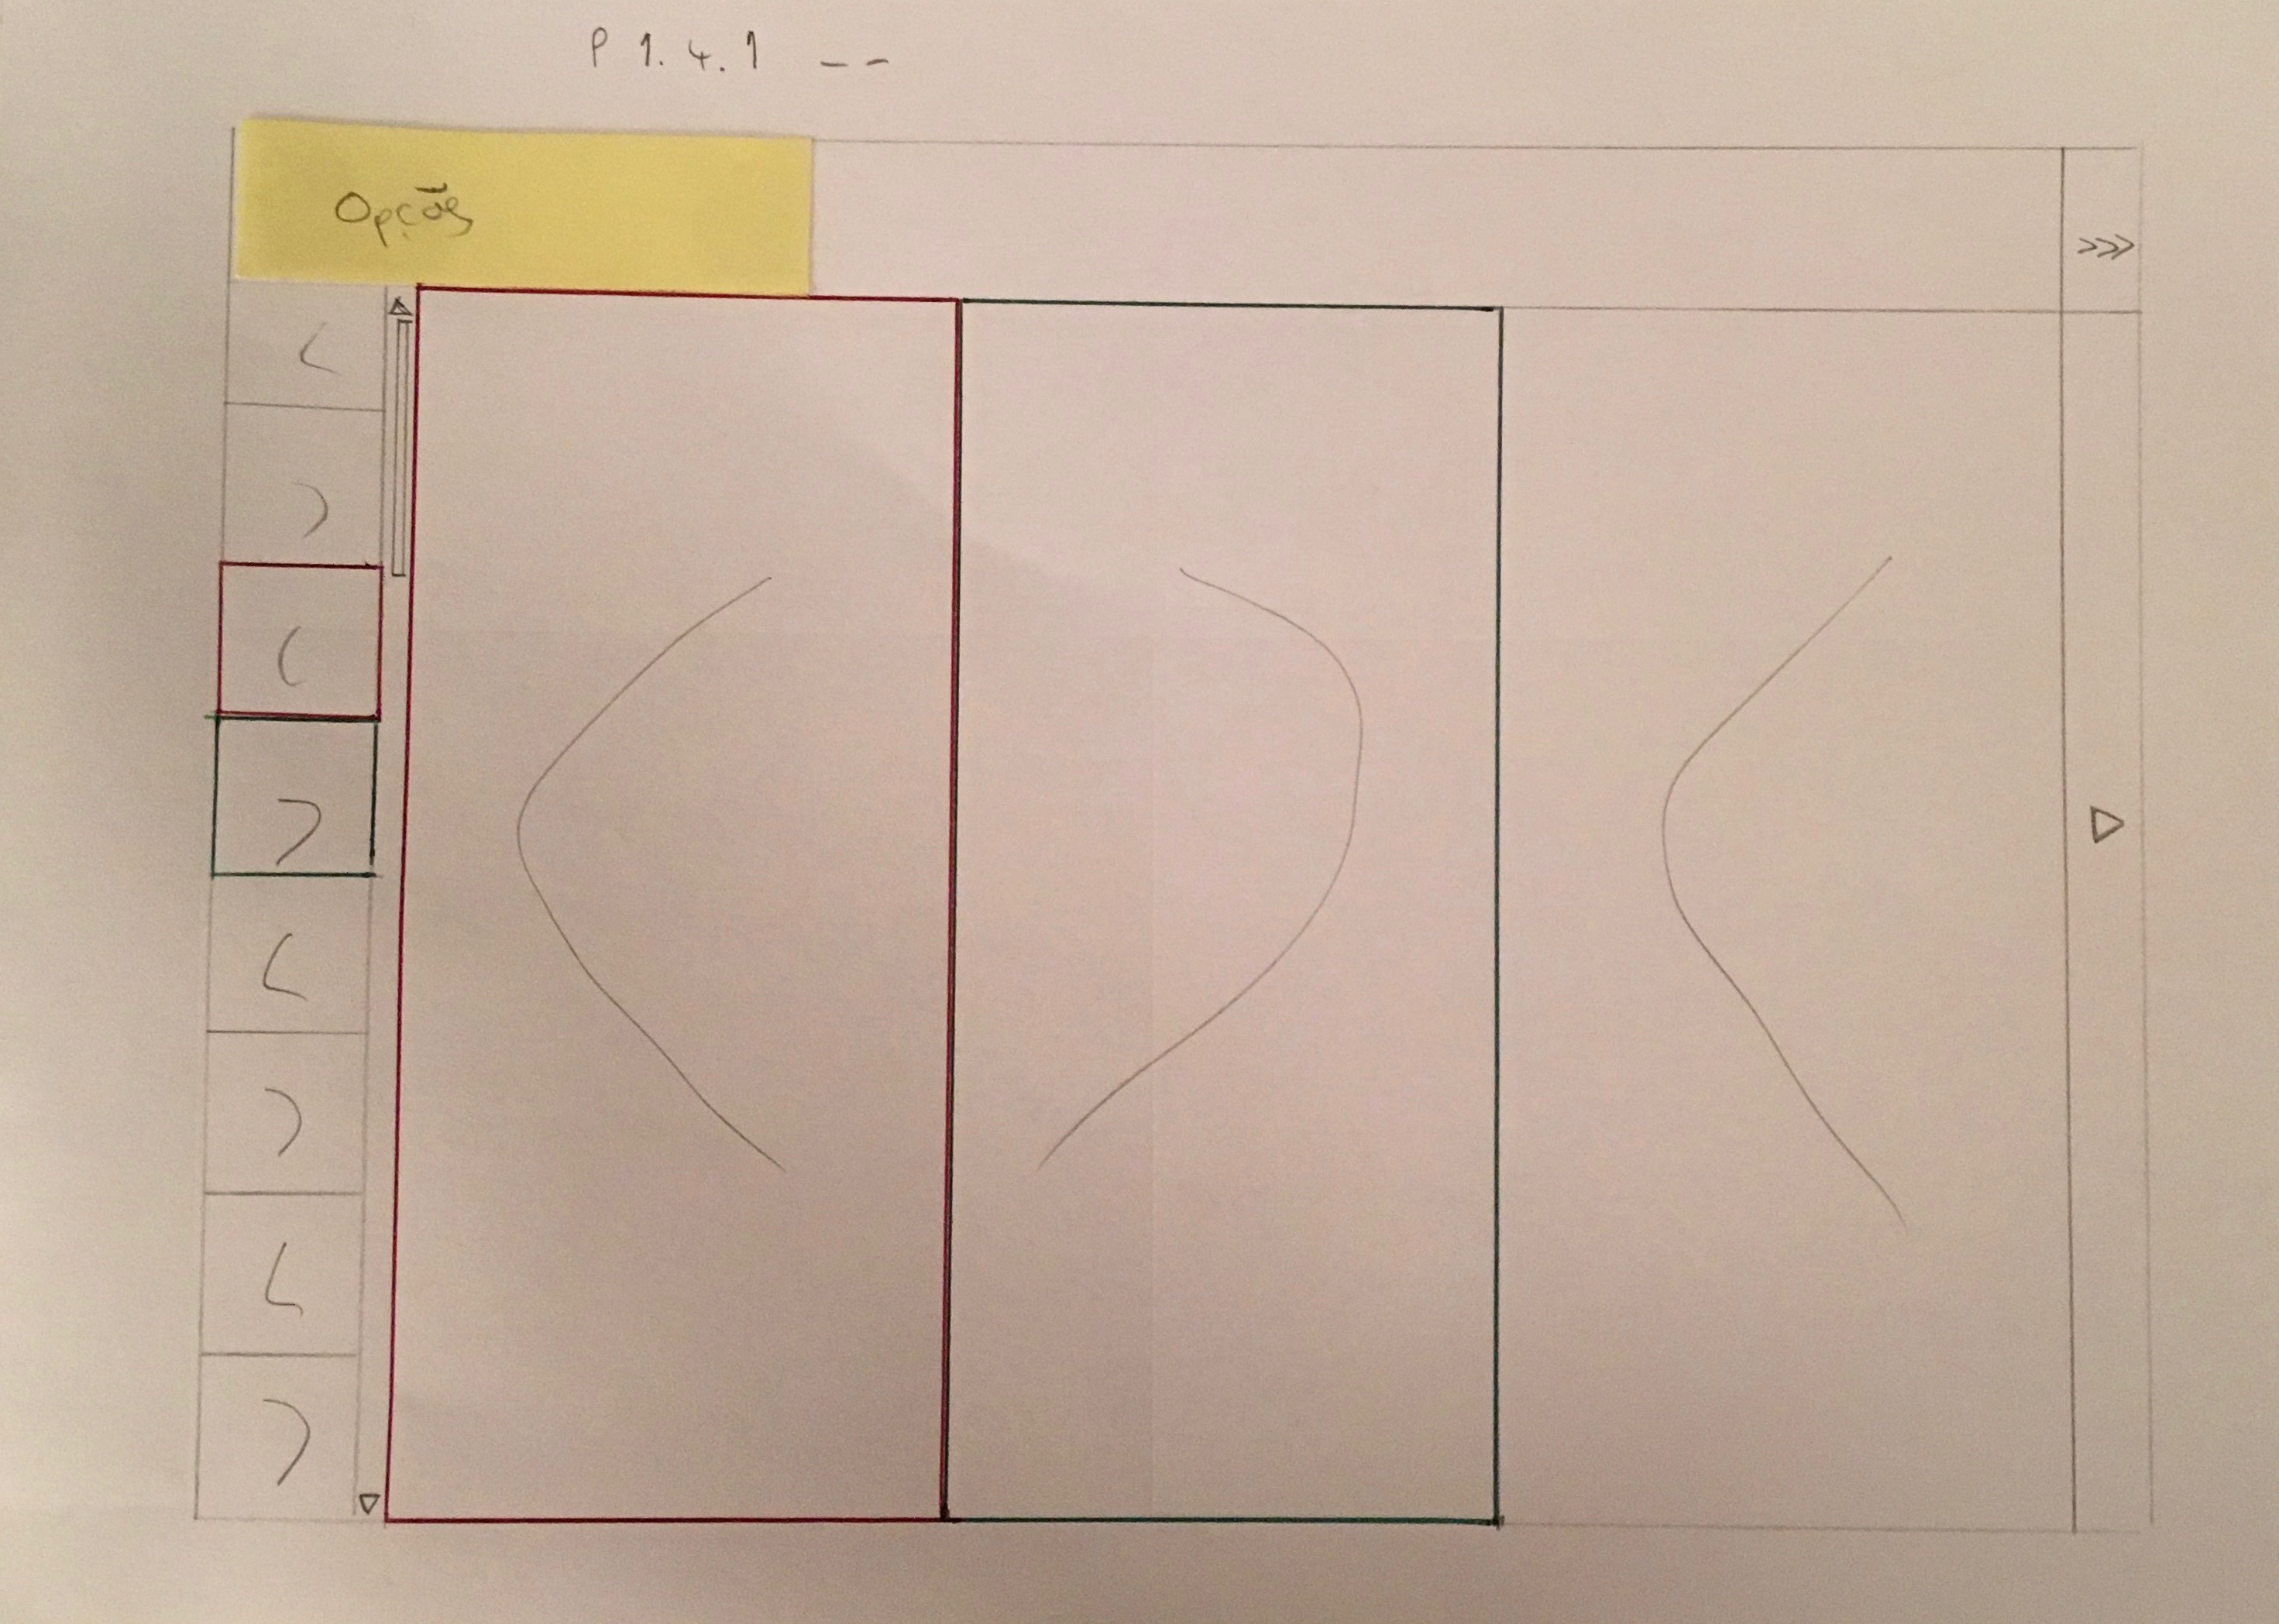 P 1.4.1 --
Opções
>>>